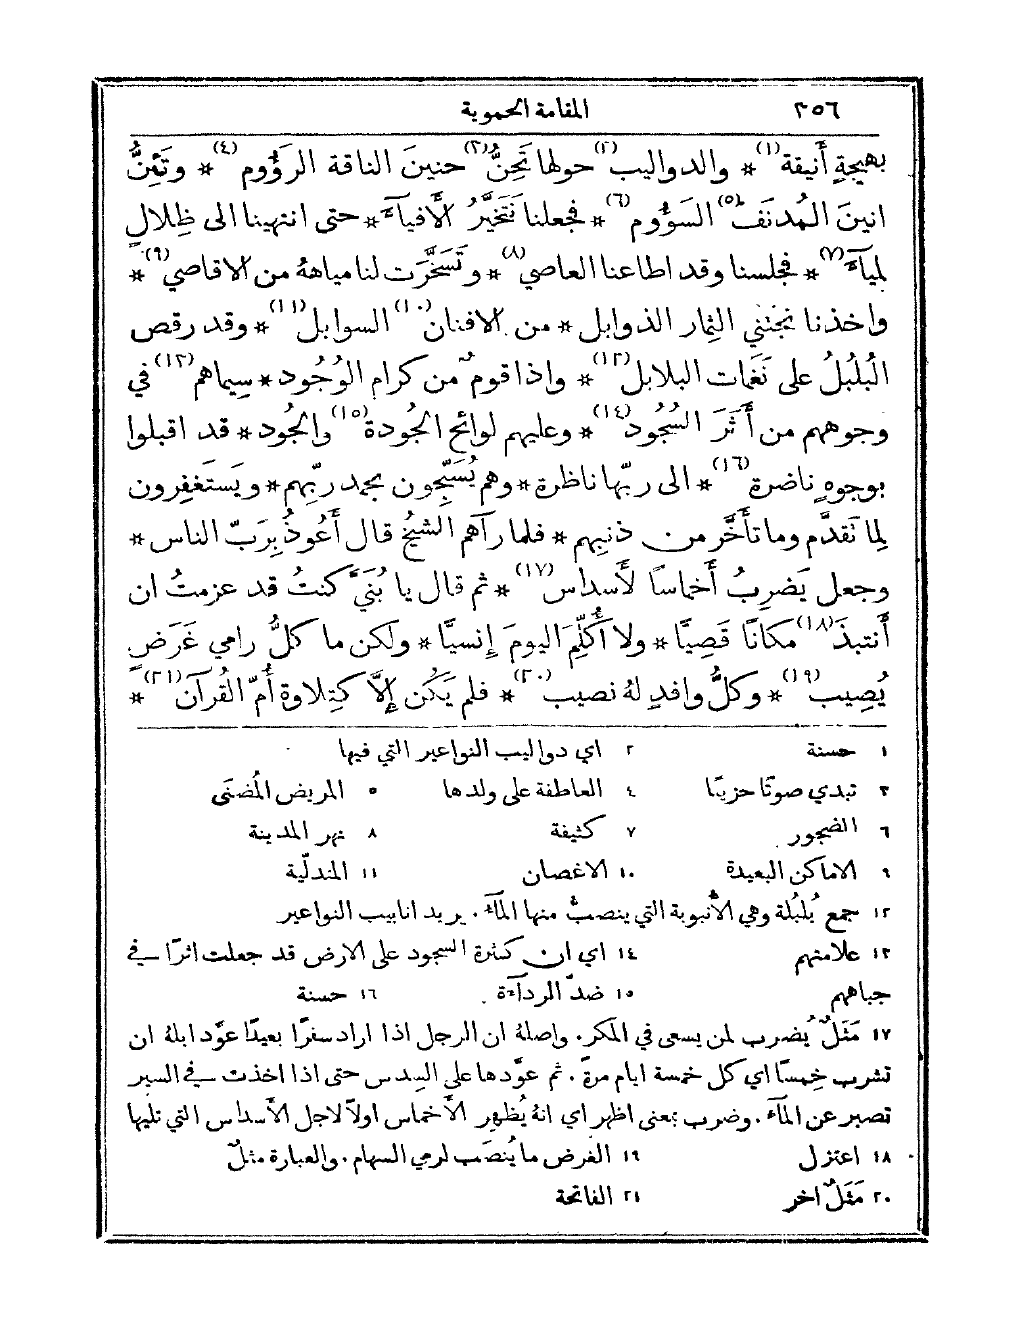 ٣٥٦ المقامة الحموية
بهيجةٍ أنيقة(١) * والدواليب(٢) حولها تَحِنُّ(٣) حنينَ الناقة الرَؤُوم(٤) * وتَئِنُّ
انينَ المُدنَف(٥) السَؤُوم(٦) * فجعلنا نَتَخيَّرُ الأَفياَء * حتى انتهينا الى ظِلالٍ
لمياَء(٧) * فجلسنا وقد اطاعنا العاصي(٨) * وتَسَخَّرَت لنا مياههُ من الاقاصي(٩) *
واخذنا نجتني الثمار الذوابل * من الافنان(١٠) السوابل(١١) * وقد رقص
البُلبُلُ على نَغَمات البلابل(١٢) * واذا قومٌ من كرام الوُجُود * سيماهم(١٣) في
وجوههم من أَثَرَ السُجُود(١٤) * وعليهم لوائح الجُودة(١٥) والجُود * قد اقبلوا
بوجوهٍ ناضرة(١٦) * الى ربّها ناظرة * وهم يُسَبِّحون بحمد ربِّهم * ويَستَغفِرون
لِما تَقدَّم وما تأَخَّر من ذنبِهم * فلما رآهم الشيخُ قال أَعُوذُ بِرَبّ الناس *
وجعل يَضرِبُ أَخماسًا لأَسداس(١٧) * ثم قال يا بُنَيَّ كنتُ قد عزمتُ ان
أَنتبذَ(١٨) مكانًا قَصِيًّا * ولا أُكلِّمَ اليومَ إِنسيًّا * ولكن ما كلُّ رامي غَرَضٍ
يُصِيب(١٩) * وكلُّ وافدٍ لهُ نصيب(٢٠) * فلم يَكُن إِلَّا كتِلاوة أُمّ القُرآن(٢١) *
١ حسنة ٢ اي دواليب النواعير التي فيها
٣ تبدي صوتًا حزينًا ٤ العاطفة على ولدها ٥ المريض المُضنَى
٦ الضجور ٧ كثيفة ٨ نهر المدينة
٩ الاماكن البعيدة ١٠ الاغصان ١١ المتدلّية
١٢ جمع بُلبُلة وهي الأنبوبة التي ينصبُّ منها المآء. يريد انابيب النواعير
١٣ علامتهم ١٤ اي ان كثرة السجود على الارض قد جعلت اثرًا في
جباههم ١٥ ضدّ الردآءة ١٦ حسنة
١٧ مَثَلٌ يُضرب لمن يسعى في المكر. واصلهُ ان الرجل اذا اراد سفرًا بعيدًا عوَّد ابله ان
تشرب خِمسًا اي كل خمسة ايام مرةً. ثم عوَّدها على السِدس حتى اذا اخذت في السير
تصبر عن المآء. وضرب بمعنى اظهر اي انهُ يُظهِر الأخماس اولًا لاجل الأسداس التي تليها
١٨ اعتزل ١٩ الغرض ما يُنصَب لرمي السهام. والعبارة مثلٌ
٢٠ مَثَلٌ اخر ٢١ الفاتحة